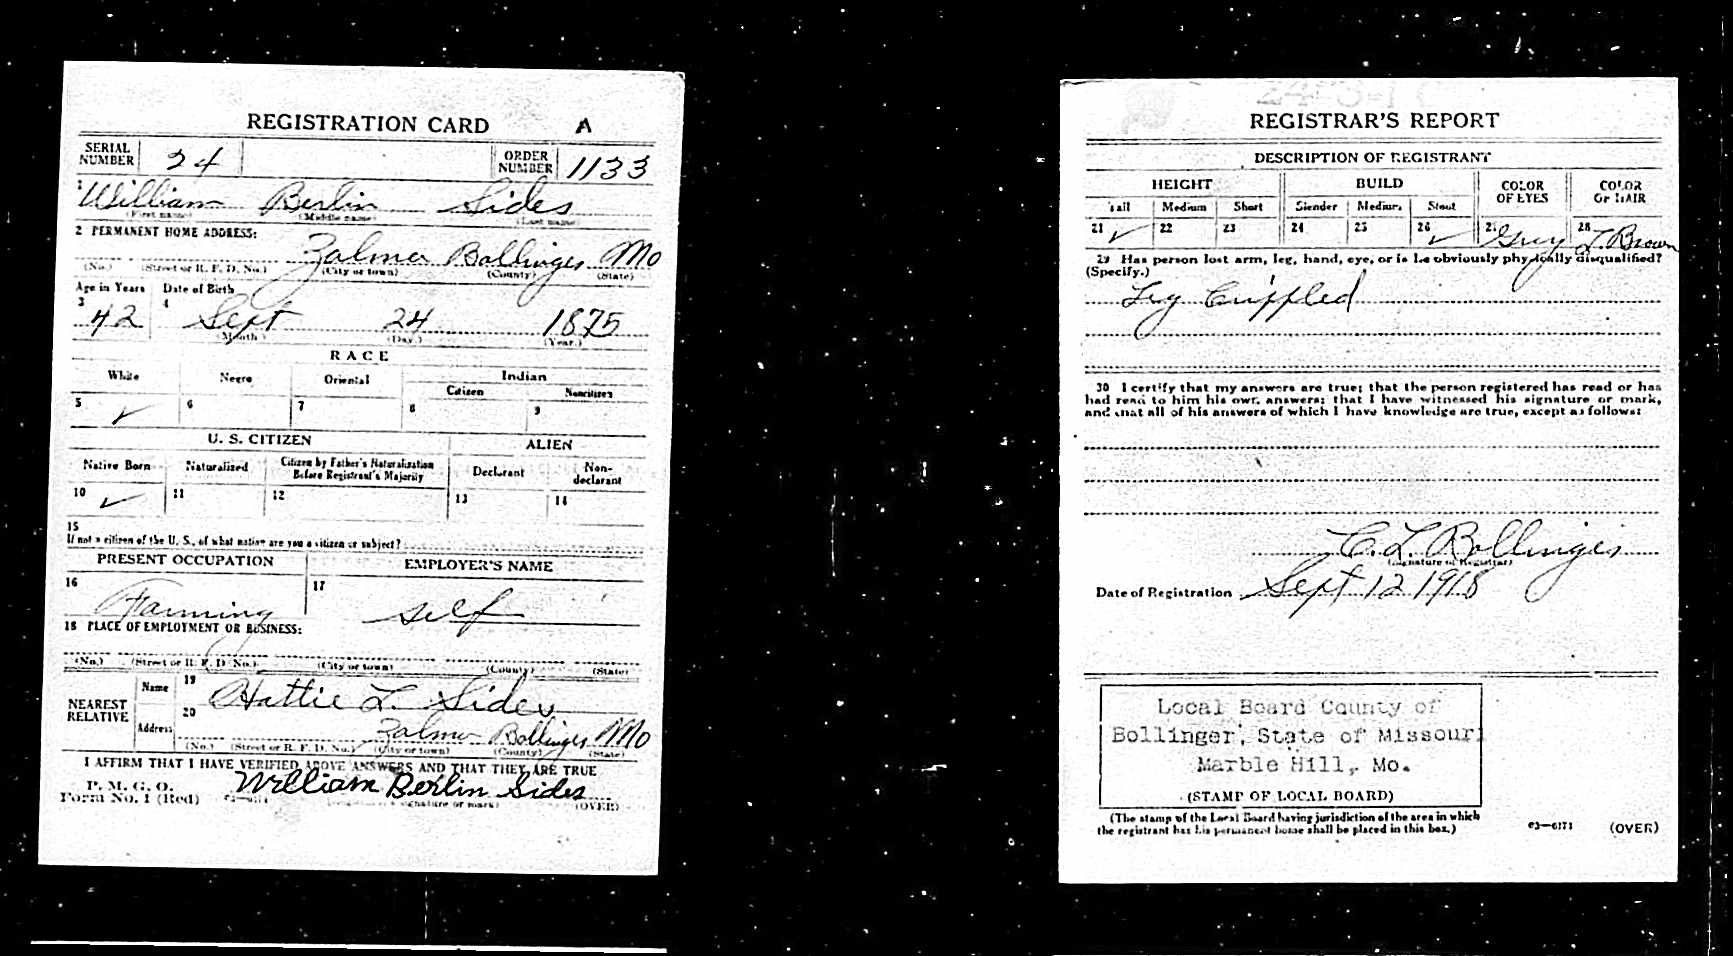 REGISTRATION CARD A
SERIAL NUMBER 24 ORDER NUMBER 1133
1 William Berlin Sides
(First name) (Middle name) (Last name)
2 PERMANENT HOME ADDRESS:
Zalma Bollinger Mo
(No.) (Street or R. F. D. No.) (City or town) (County) (State)
Age in Years Date of Birth
3 42 4 Sept 24 1875
(Month.) (Day.) (Year.)
RACE
White Negro Oriental Indian
Citizen Noncitizen
5 ✓ 6 7 8 9
U. S. CITIZEN ALIEN
Native Born Naturalized Citizen by Father's Naturalization Before Registrant's Majority Declarant Non-declarant
10 ✓ 11 12 13 14
15
If not a citizen of the U. S., of what nation are you a citizen or subject?
PRESENT OCCUPATION EMPLOYER'S NAME
16 Farming 17 self
18 PLACE OF EMPLOYMENT OR BUSINESS:
(No.) (Street or R. F. D. No.) (City or town) (County) (State)
NEAREST RELATIVE Name 19 Hattie L. Sides
Address 20 Zalma Bollinger Mo
(No.) (Street or R. F. D. No.) (City or town) (County) (State)
I AFFIRM THAT I HAVE VERIFIED ABOVE ANSWERS AND THAT THEY ARE TRUE
P. M. G. O.
Form No. 1 (Red) William Berlin Sides
(Registrant's signature or mark) (OVER)
REGISTRAR'S REPORT
DESCRIPTION OF REGISTRANT
HEIGHT BUILD COLOR OF EYES COLOR OF HAIR
Tall Medium Short Slender Medium Stout
21 ✓ 22 23 24 25 26 ✓ 27 Grey 28 L. Brown
29 Has person lost arm, leg, hand, eye, or is he obviously physically disqualified?
(Specify.)
Leg Crippled
30 I certify that my answers are true; that the person registered has read or has
had read to him his own answers; that I have witnessed his signature or mark,
and that all of his answers of which I have knowledge are true, except as follows:
C. L. Bollinger
(Signature of Registrar)
Date of Registration Sept 12 1918
Local Board County of
Bollinger, State of Missouri
Marble Hill, Mo.
(STAMP OF LOCAL BOARD)
(The stamp of the Local Board having jurisdiction of the area in which
the registrant has his permanent home shall be placed in this box.)
03—6171 (OVER)